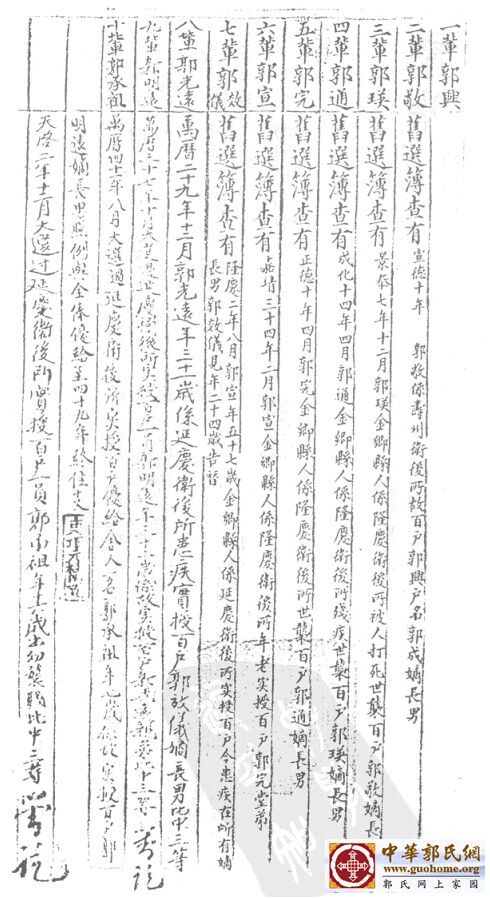 一輩郭興
二輩郭敬 舊選簿查有 宣德十年 郭敬係壽州衛後所故百戶郭興戶名郭成嫡長男
三輩郭瑛 舊選簿查有 景泰七年十二月郭瑛金鄉縣人係隆慶衛後所被人打死世襲百戶郭敬嫡長男
四輩郭通 舊選簿查有 成化十四年四月郭通金鄉縣人係隆慶衛後所殘疾世襲百戶郭瑛嫡長男
五輩郭完 舊選簿查有 正德十年四月郭完金鄉縣人係隆慶衛後所世襲百戶郭通嫡長男
六輩郭宣 舊選簿查有 嘉靖三十四年二月郭宣金鄉縣人係隆慶衛後所年老實授百戶郭完堂弟
七輩郭效儀 舊選簿查有 隆慶二年八月郭宣年五十七歲金鄉縣人係延慶衛後所實授百戶今患疾在所有嫡
長男郭效儀見年二十四歲告替
八輩郭光遠 萬曆二十九年十二月郭光遠年三十一歲係延慶衛後所患疾實授百戶郭效儀嫡長男比中三等
九輩郭明遠 萬曆三十七年十月大選過延慶衛後所實授百戶一員郭明遠年三十二歲係故實授百戶郭光遠親弟比中三等 訖
十輩郭承祖 萬曆四十一年八月大選過延慶衛後所實授百戶優給舍人一名郭承祖年七歲係故實授百戶郭
明遠嫡長男照例與全俸優給至四十九年終住支
天啓二年十二月大選過延慶衛後所實授百戶一員郭承祖年十六歲出幼襲職比中三等 訖
中華郭氏網
www.guohome.org
郭氏网上家园